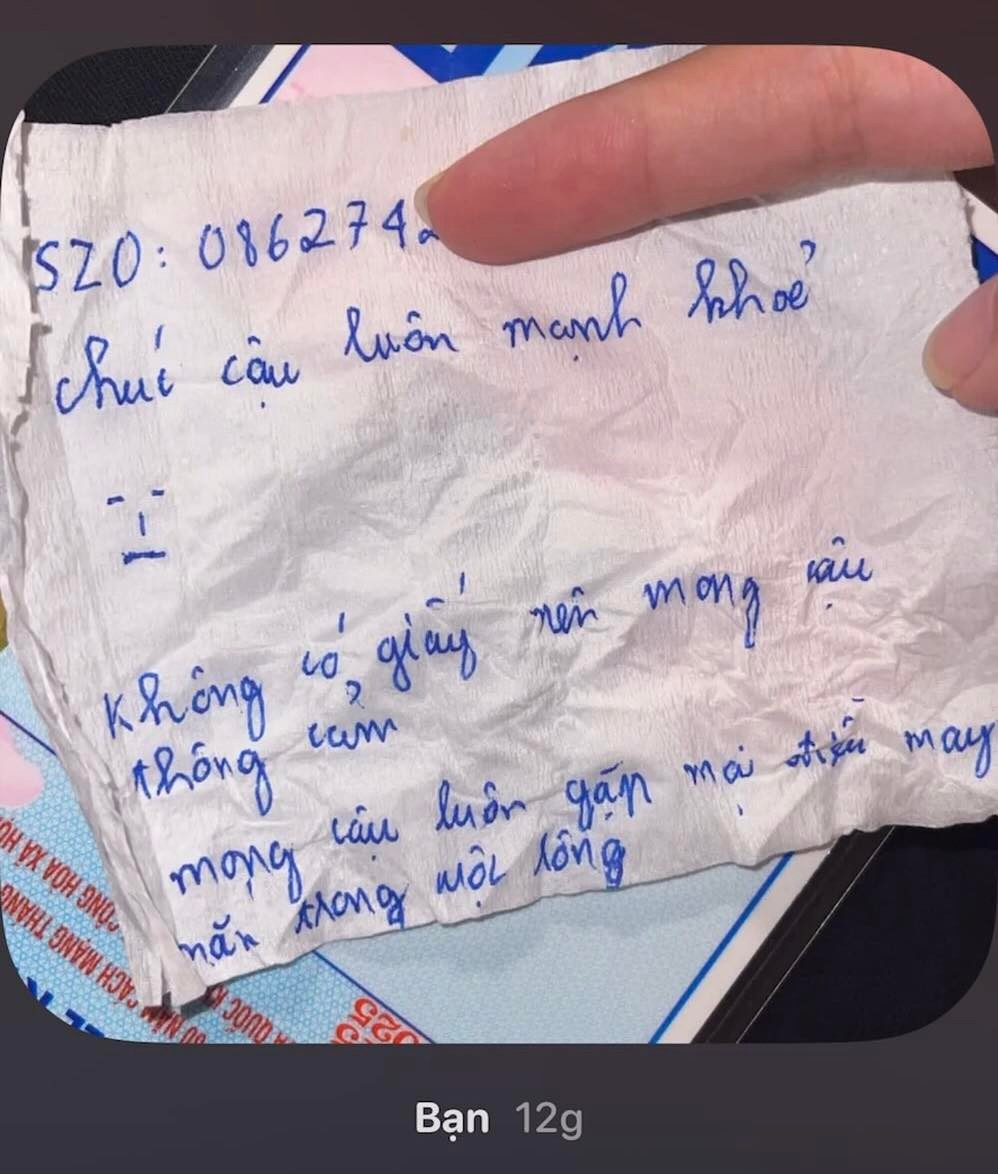 SZO: 086274
Chúc cậu luôn mạnh khoẻ
Không có giấy nên mong cậu
thông cảm
mong cậu luôn gặp mọi điều may
mắn trong cuộc sống
CỘNG HÒA XÃ HỘ
CÁCH MẠNG THÁNG
80 NĂM
QUỐC K
025
Bạn 12g